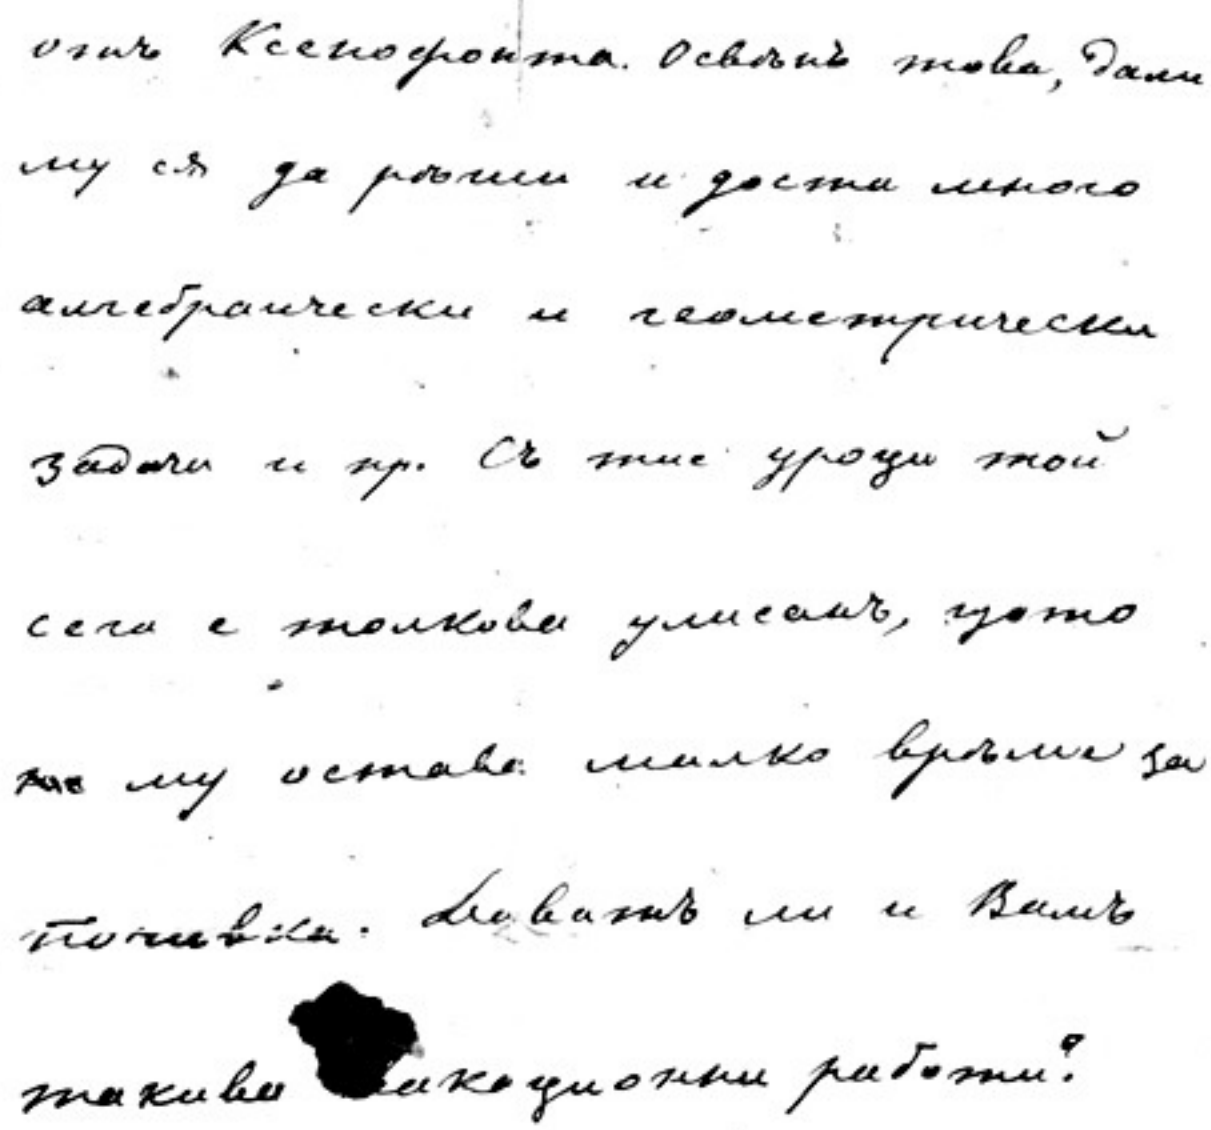 отъ Ксенофонта. Освѣнъ това, дали
му ся да рѣши и доста много
алгебраически и геометрически
задачи и пр. Съ тие уроци той
сега е толкова улисанъ, щото
му остава малко врѣме за
почивка. Даватъ ли и Вамъ
такива работи?